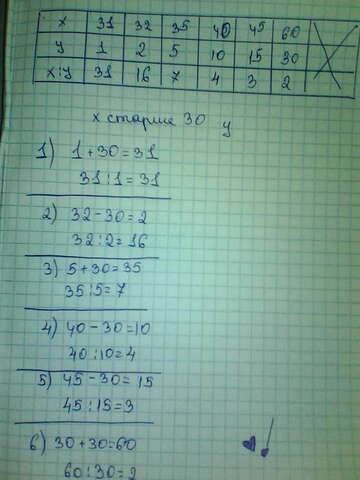 x 31 32 35 40 45 60
y 1 2 5 10 15 30
x:y 31 16 7 4 3 2
x старше 30 y
1) 1+30=31
31:1=31
2) 32-30=2
32:2=16
3) 5+30=35
35:5=7
4) 40-30=10
40:10=4
5) 45-30=15
45:15=3
6) 30+30=60
60:30=2